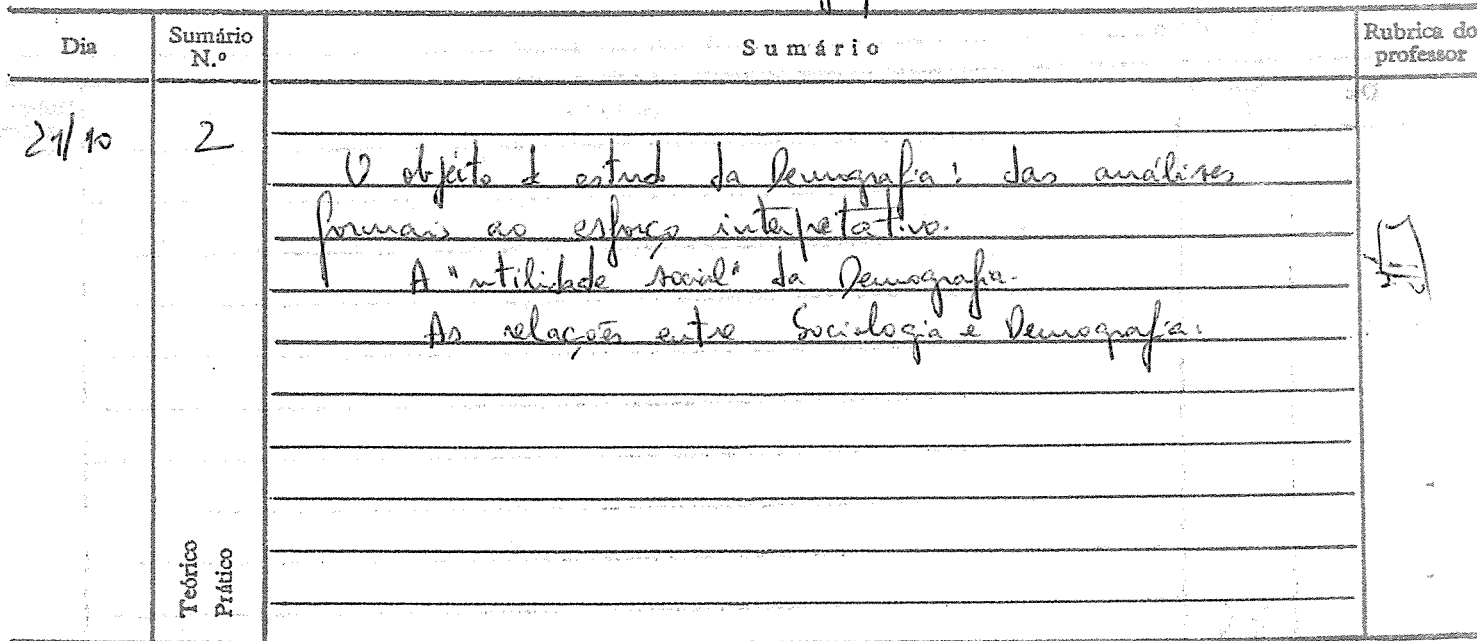 Dia Sumário N.º Sumário Rubrica do professor
21/10 2
O objecto de estudo da Demografia: das análises
formais ao esforço interpretativo.
A "utilidade social" da Demografia.
As relações entre Sociologia e Demografia.
Teórico
Prático